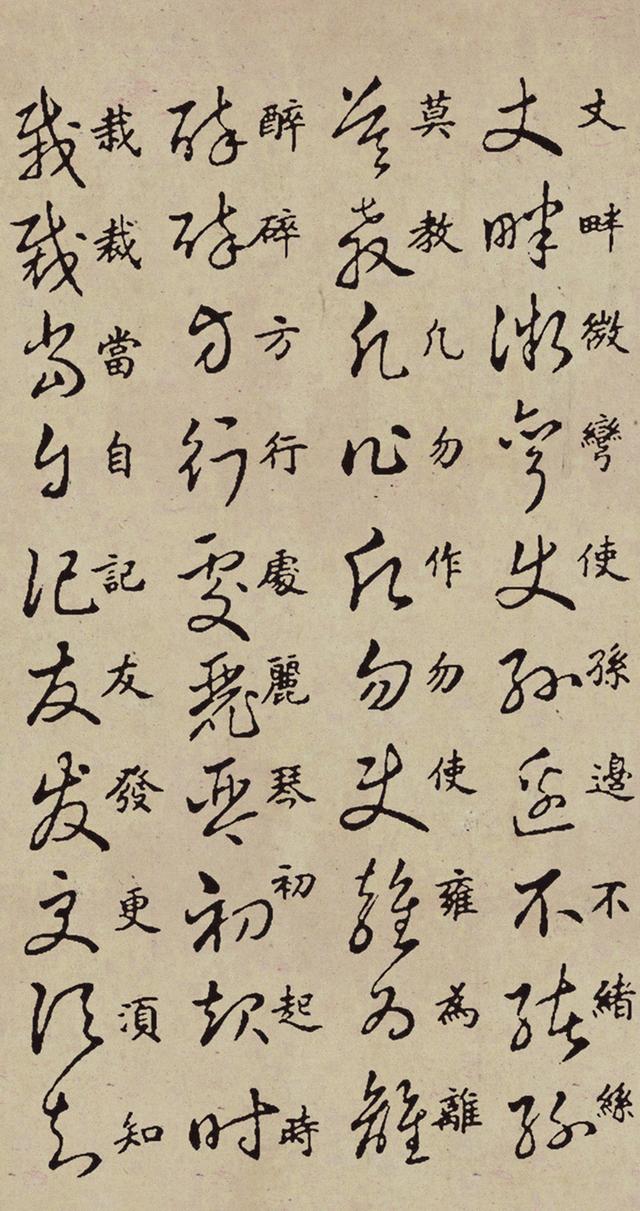 丈畔微彎使孫邊不緒絲
丈畔微彎使孫邊不緒絲
莫教凡勿作勿使雍為離
莫教凡勿使雍為離
醉碎方行處麗琴初起時
醉碎方行處麗琴初起時
栽裁當自記友發更湏知
栽裁當自記友發更須知